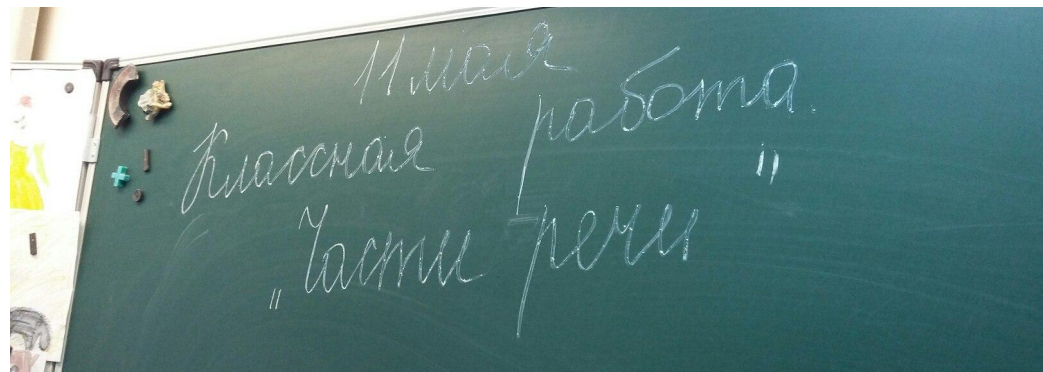 11 мая
Классная работа.
„Части речи"